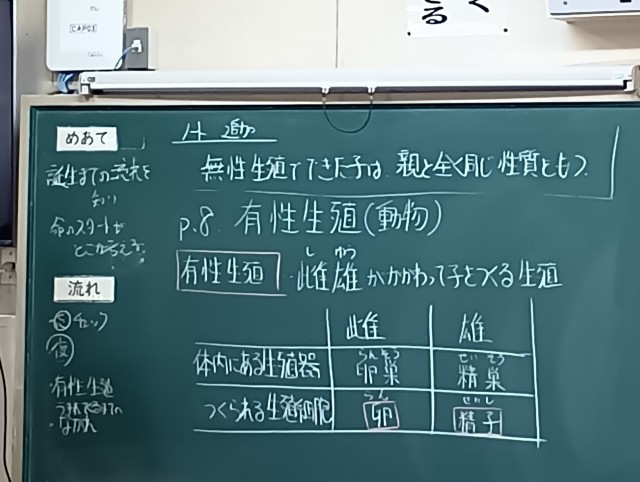 CAPCS
く
てる
めあて
誕生までの流れを
知り
命のスタートが
どこか考える。
流れ
チェック
復
・有性生殖
・ながれ
ノート 追加
無性生殖でできた子は、親と全く同じ性質をもつ。
P.8. 有性生殖(動物)
有性生殖 ・雌雄がかかわって子をつくる生殖
し ゆう
雌 雄
体内にある生殖器 卵巣 精巣
らんそう せいそう
つくられる生殖細胞 卵 精子
らん せいし